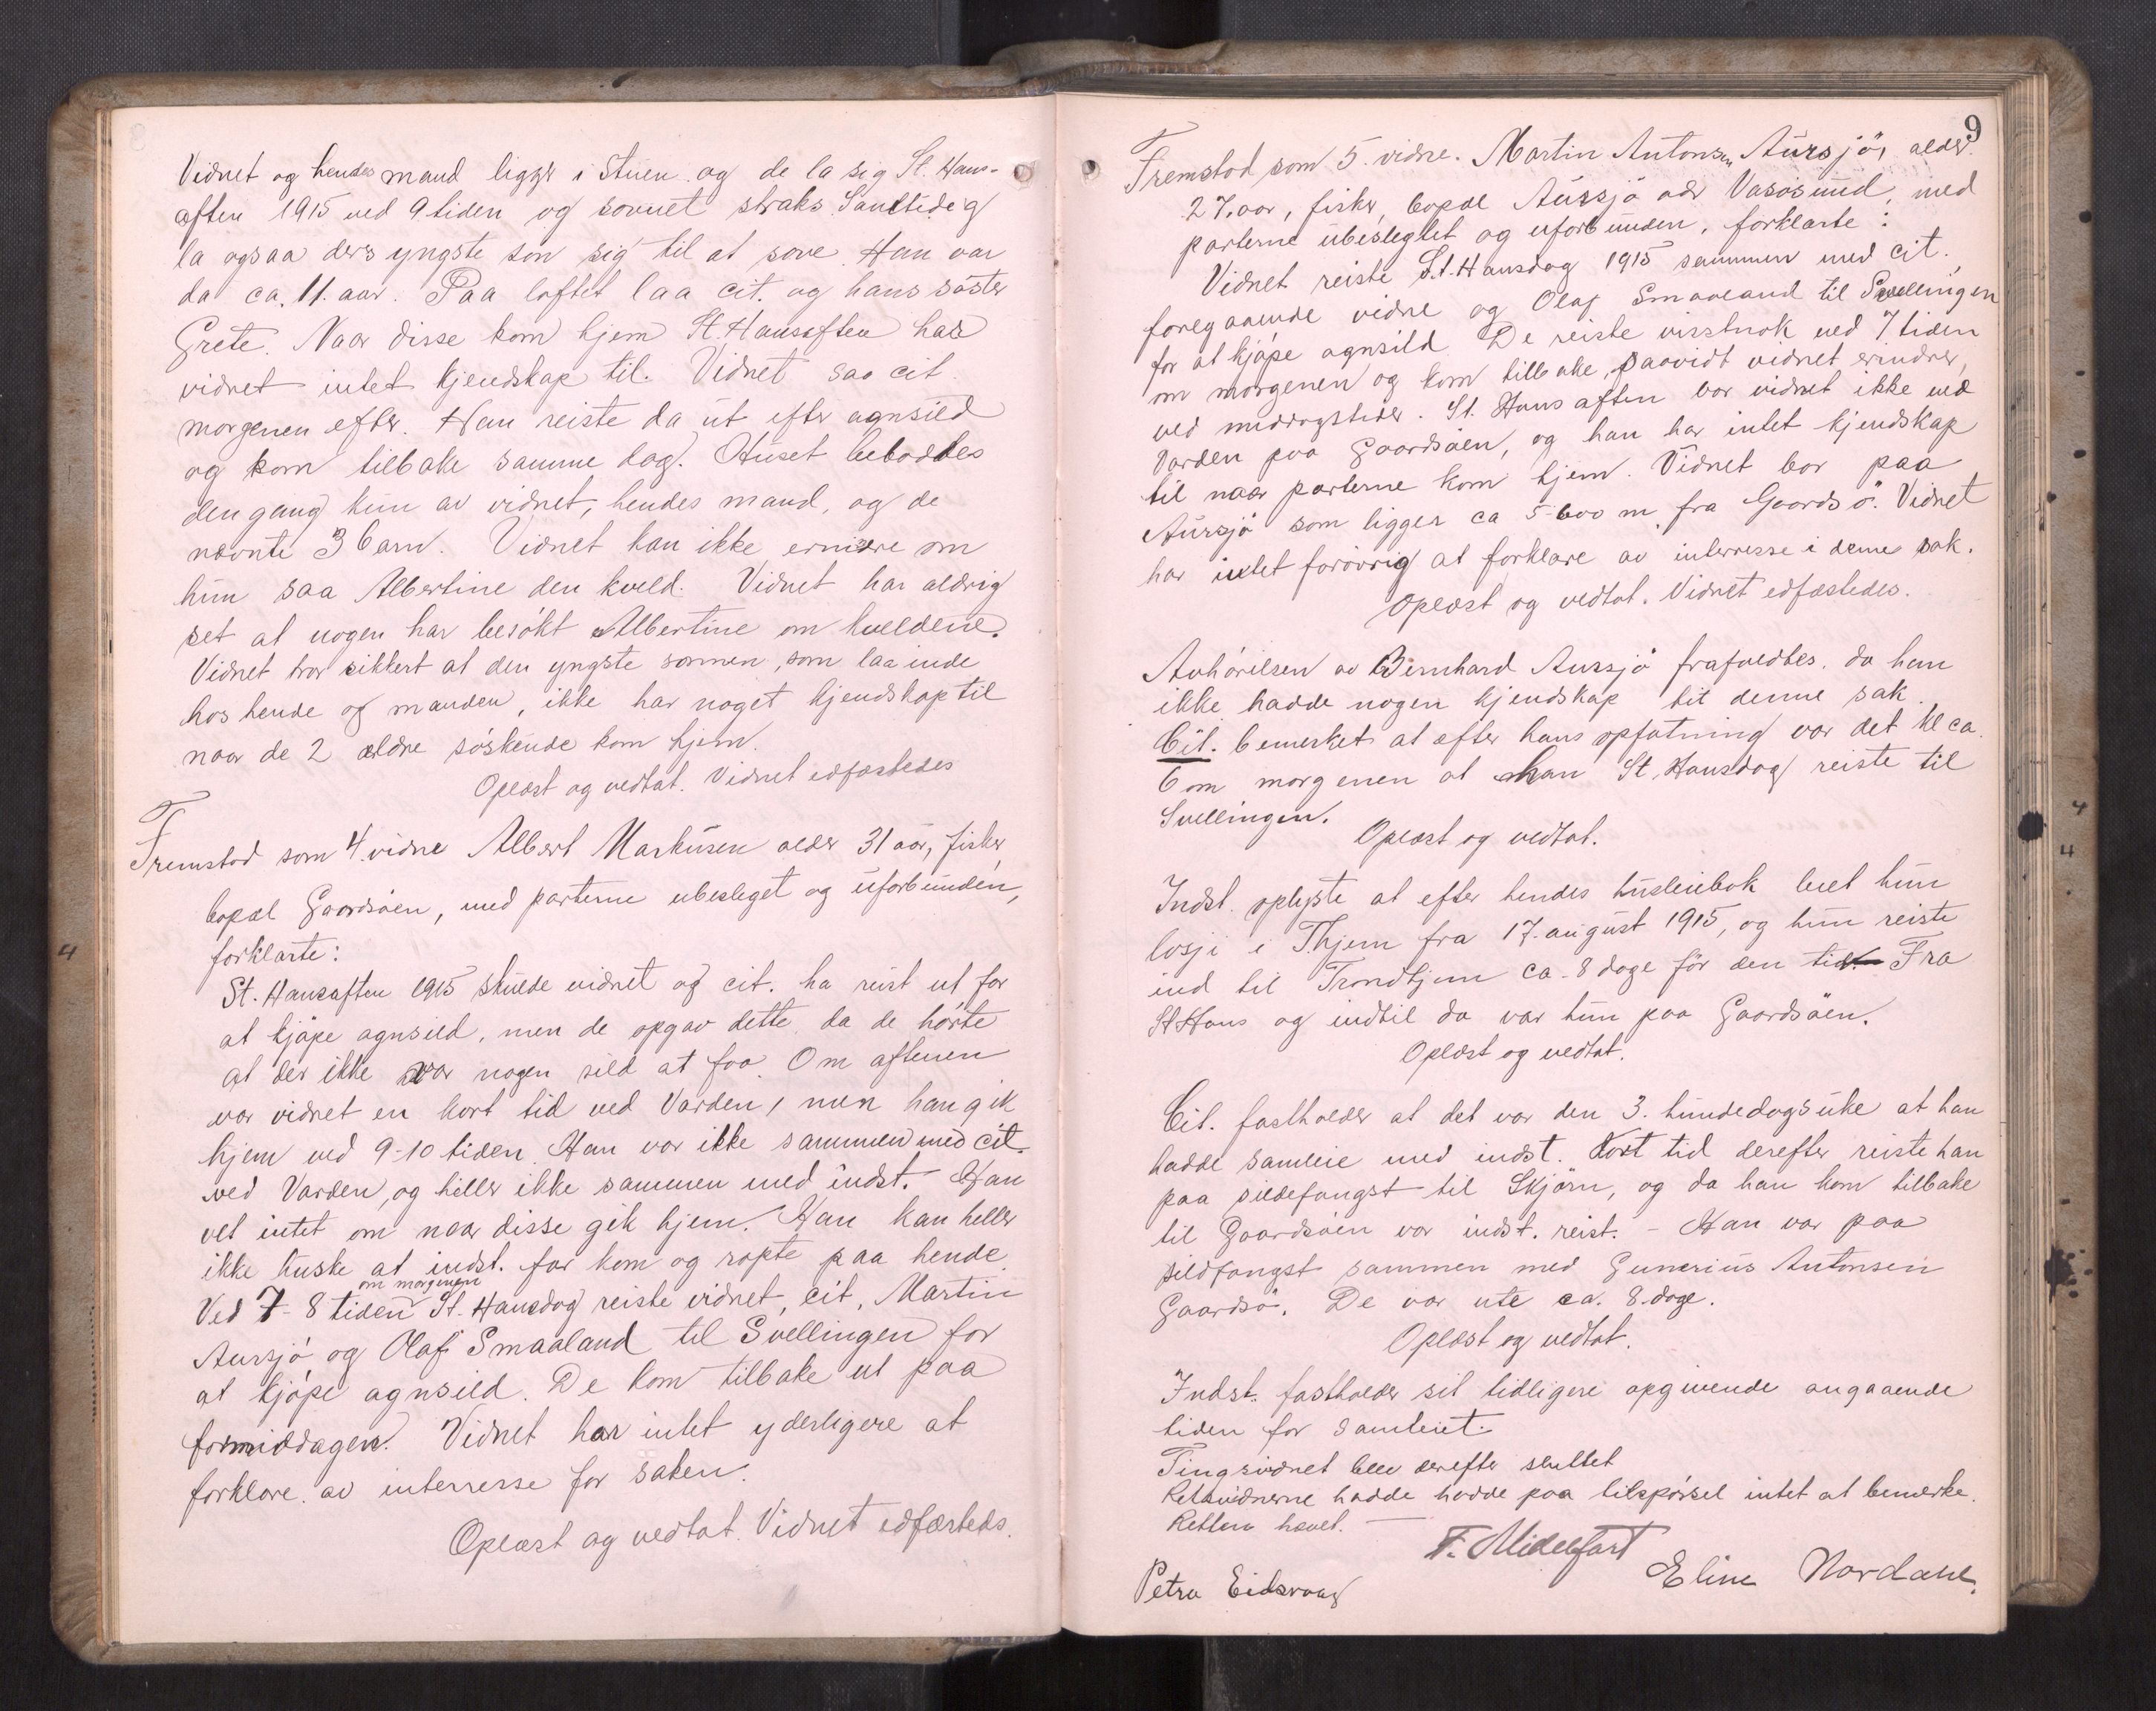 Vidnet og hendes mand ligger i Stuen og de la sig St. Hans-
aften 1915 ved 9 tiden og sovnet straks. Samtidig
la ogsaa deres yngste søn sig til at sove. Han var
da ca. 11. aar. Paa loftet laa cit. og hans søster
Grete. Naar disse kom hjem St. Hansaften har
vidnet intet kjendskap til. Vidnet saa cit.
morgenen efter. Han reiste da ut efter agnsild
og kom tilbake samme dag. Huset beboddes
dengang kun av vidnet, hendes mand, og de
nævnte 3 barn. Vidnet kan ikke erindre om
hun saa Albertine den kveld. Vidnet har aldrig
set at nogen har besøkt Albertine om kveldene.
Vidnet tror sikkert at den yngste sønnen, som laa inde
hos hende og manden, ikke har noget kjendskap til
naar de 2 ældre søskende kom hjem.
Oplæst og vedtat. Vidnet edfæstedes
Fremstod som 4. vidne Albert Markusen alder 31 aar, fisker,
bopæl Gaardsøen, med parterne ubesleget og uforbunden,
forklarte:
St. Hansaften 1915 skulde vidnet og cit. ha reist ut for
at kjøpe agnsild, men de opgav dette da de hørte
at der ikke var nogen sild at faa. Om aftenen
var vidnet en kort tid ved Varden, men han gik
hjem ved 9-10 tiden. Han var ikke sammen med cit.
ved Varden, og heller ikke sammen med indst. Han
vet intet om naar disse gik hjem. Han kan heller
ikke huske at indst. far kom og ropte paa hende.
om morgenen
Ved 7-8 tiden St. Hansdag reiste vidnet, cit, Martin
Aursjø og Olaf Smaaland til Svellingen for
at kjøpe agnsild. De kom tilbake ut paa
formiddagen. Vidnet har intet yderligere at
forklare av interresse for saken.
Oplæst og vedtat. Vidnet edfæstedes.
9
Fremstod som 5. vidne. Martin Antonsen Aursjø, alder
27. aar, fisker, bopæl Aursjø adr Vasøsund, med
parterne ubeslegtet og uforbunden, forklarte:
Vidnet reiste St. Hansdag 1915 sammen med cit.,
foregaaende vidne og Olaf Smaaland til Svellingen
for at kjøpe agnsild. De reiste visstnok ved 7 tiden
om morgenen og kom tilbake, saavidt vidnet erindrer,
ved middagstider. St. Hans aften var vidnet ikke ved
Varden paa Gaardsøen, og han har intet kjendskap
til naar parterne kom hjem. Vidnet bor paa
Aursjø som ligger ca 5-600 m. fra Gaardsø. Vidnet
har intet forøvrig at forklare av interresse i denne sak.
Oplæst og vedtat. Vidnet edfæstedes.
Avhørelsen av Bernhard Aursjø frafaldtes, da han
ikke hadde nogen kjendskap til denne sak.
Cit. bemerket at efter hans opfatning var det kl ca.
6 om morgenen at han St. Hansdag reiste til
Svellingen.
Oplæst og vedtat.
Indst. oplyste at efter hendes husleiebok leiet hun
losji i T.hjem fra 17. august 1915, og hun reiste
ind til Trondhjem ca. 8 dage før den tid. Fra
St Hans og indtil da var hun paa Gaardsøen.
Oplæst og vedtat.
Cit. fastholder at det var den 3. hundedagsuke at han
hadde samleie med indst. Kort tid derefter reiste han
paa sildefangst til Skjørn, og da han kom tilbake
til Gaardsøen var indst. reist. – Han var paa
sildfangst sammen med Gunerius Antonsen
Gaardsø. De var ute ca. 8. dage.
Oplæst og vedtat.
Indst. fastholder sit tidligere opgivende angaaende
tiden for samleiet.
Tingsvidnet blev derefter sluttet
Retsvidnerne hadde hadde paa tilspørsel intet at bemerke.
Retten hævet. —
F. Midelfart
Petra Eidsvaag
Eline Nordahl.